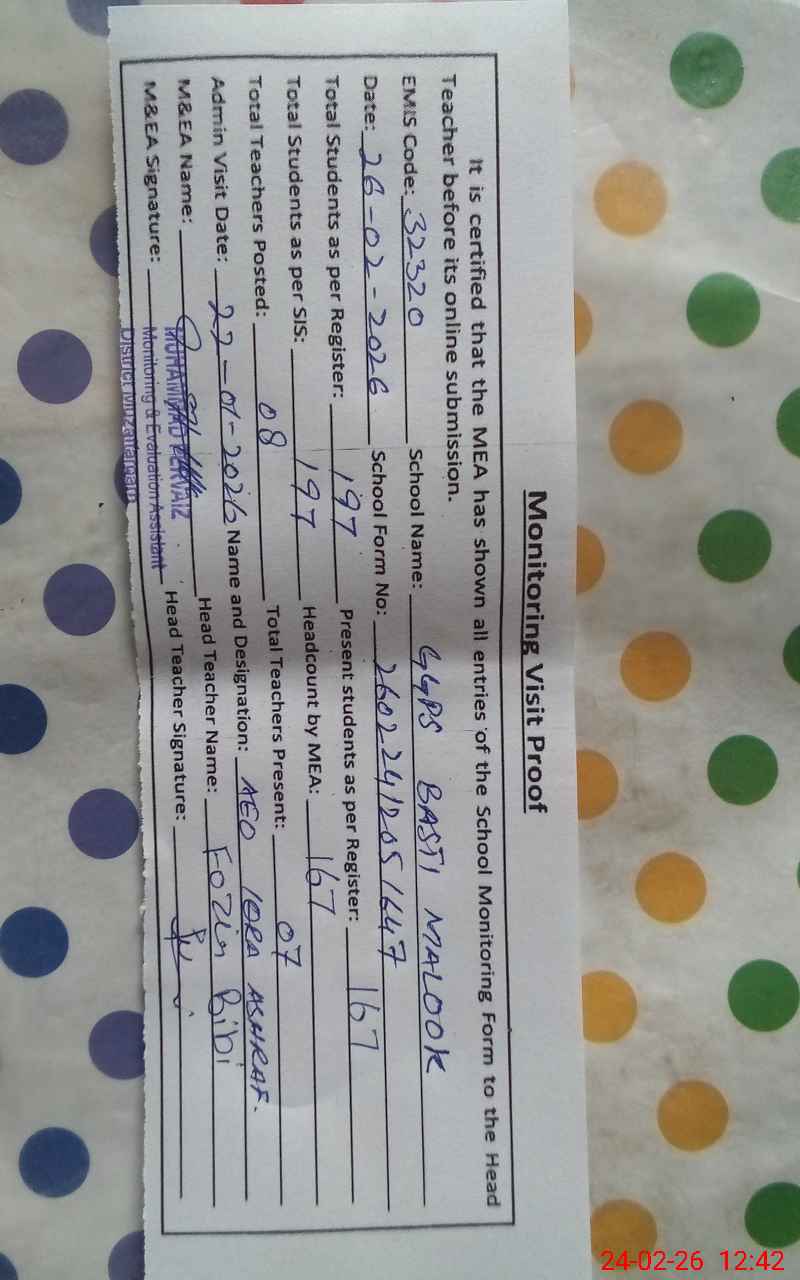 Monitoring Visit Proof
It is certified that the MEA has shown all entries of the School Monitoring Form to the Head
Teacher before its online submission.
EMIS Code: 32320 School Name: GGPS BASTI MALOOK
Date: 26-02-2026 School Form No: 26022412051647
Total Students as per Register: 197 Present students as per Register: 167
Total Students as per SIS: 197 Headcount by MEA: 167
Total Teachers Posted: 08 Total Teachers Present: 07
Admin Visit Date: 22-01-2026 Name and Designation: AEO IQRA ASHRAF.
M&EA Name: Head Teacher Name: Fozia Bibi
M&EA Signature: Head Teacher Signature:
MUHAMMAD PERVAIZ
Monitoring & Evaluation Assistant
District Muzaffargarh
24-02-26 12:42